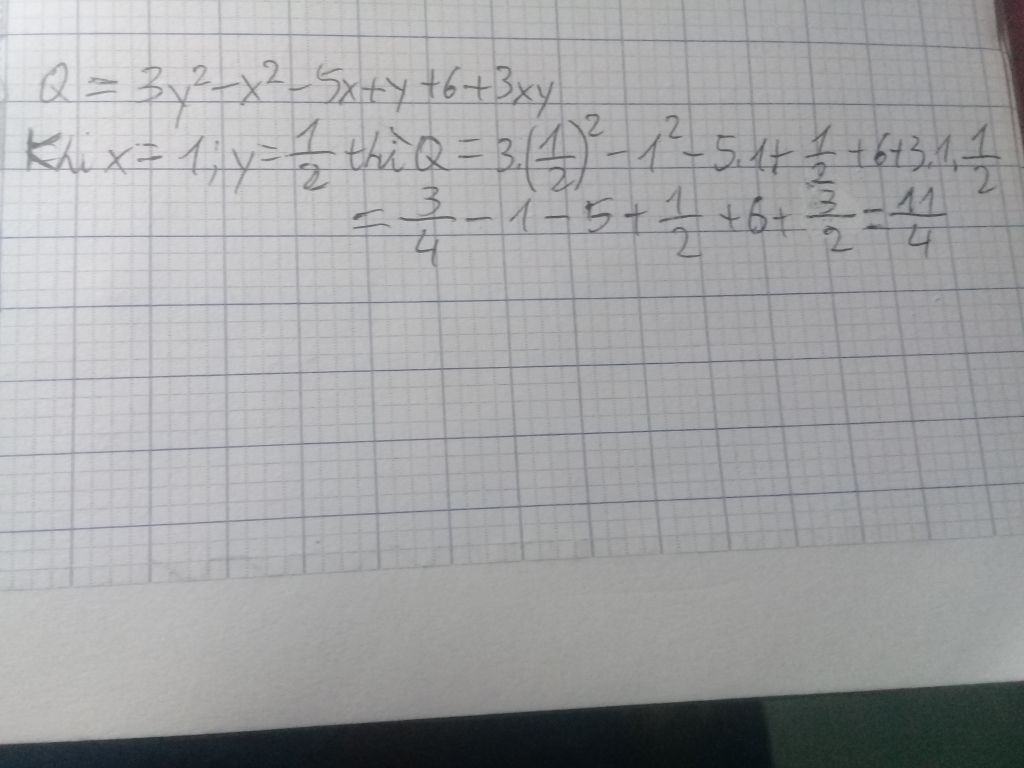 Q = 3y² - x² - 5x + y + 6 + 3xy
Khi x = 1; y = 1/2 thì Q = 3.(1/2)² - 1² - 5.1 + 1/2 + 6 + 3.1.1/2
= 3/4 - 1 - 5 + 1/2 + 6 + 3/2 = 11/4